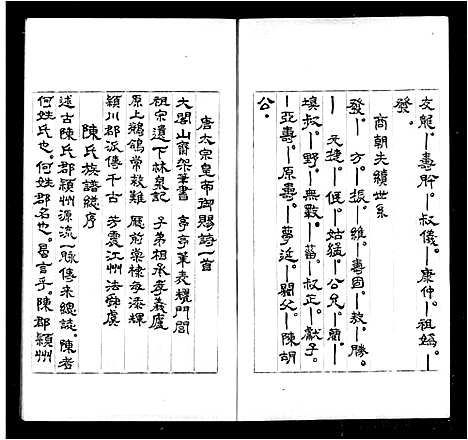 友熊—壽胙—叔儀—康仲—祖媯—
發。
商朝先續世系
發—方。振—維—壽固—敖—勝。
—天捷—低—姑猛—公兄—簡—
填叔—野—無斁—菑—叔正—獻子。
—亞壽—原壽—夢延—閼父—陳胡
公。
唐太宗皇帝御賜詩一首
大閣山齋架筆書 亭亭筆表耀門閭
祖宗遺下林泉記 子弟相承孝義廬
原上鶺鴒常救難 厩前棠棣每添輝
潁川郡派傳千古 芳震江州法舜虞
陳氏族譜總序
述古陳氏郡潁州源流一脉傳來總誌。陳者
何姓氏也。何姓郡名也。曷言乎。陳郡潁州